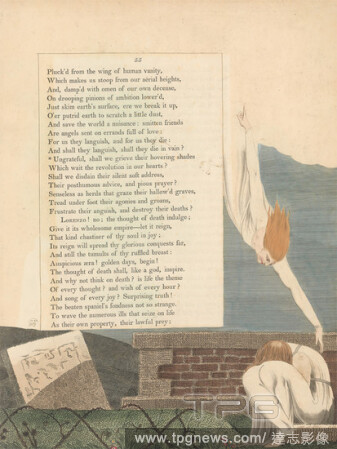 Pluck'd from the wing of human vanity,
Which makes us stoop from our aërial heights,
And, damp'd with omen of our own decease,
On drooping pinions of ambition lower'd,
Just skim earth's surface, ere we break it up,
O'er putrid earth to scratch a little dust,
And save the world a nuisance: smitten friends
Are angels sent on errands full of love:
For us they languish, and for us they die:
And shall they languish, shall they die in vain?
* Ungrateful, shall we grieve their hovering shades
Which wait the revolution in our hearts?
Shall we disdain their silent soft address,
Their posthumous advice, and pious prayer?
Senseless as herds that graze their hallow'd graves,
Tread under foot their agonies and groans,
Frustrate their anguish, and destroy their deaths?
LORENZO! no; the thought of death indulge;
Give it its wholesome empire—let it reign,
That kind chastiser of thy soul in joy;
Its reign will spread thy glorious conquests far,
And still the tumults of thy ruffled breast:
Auspicious aera! golden days, begin!
The thought of death shall, like a god, inspire.
And why not think on death? is life the theme
Of every thought? and wish of every hour?
And song of every joy? Surprising truth!
The beaten spaniel's fondness not so strange.
To wave the numerous ills that seize on life
As their own property, their lawful prey;
TPG
www.tpgnews.com/ 達志影像